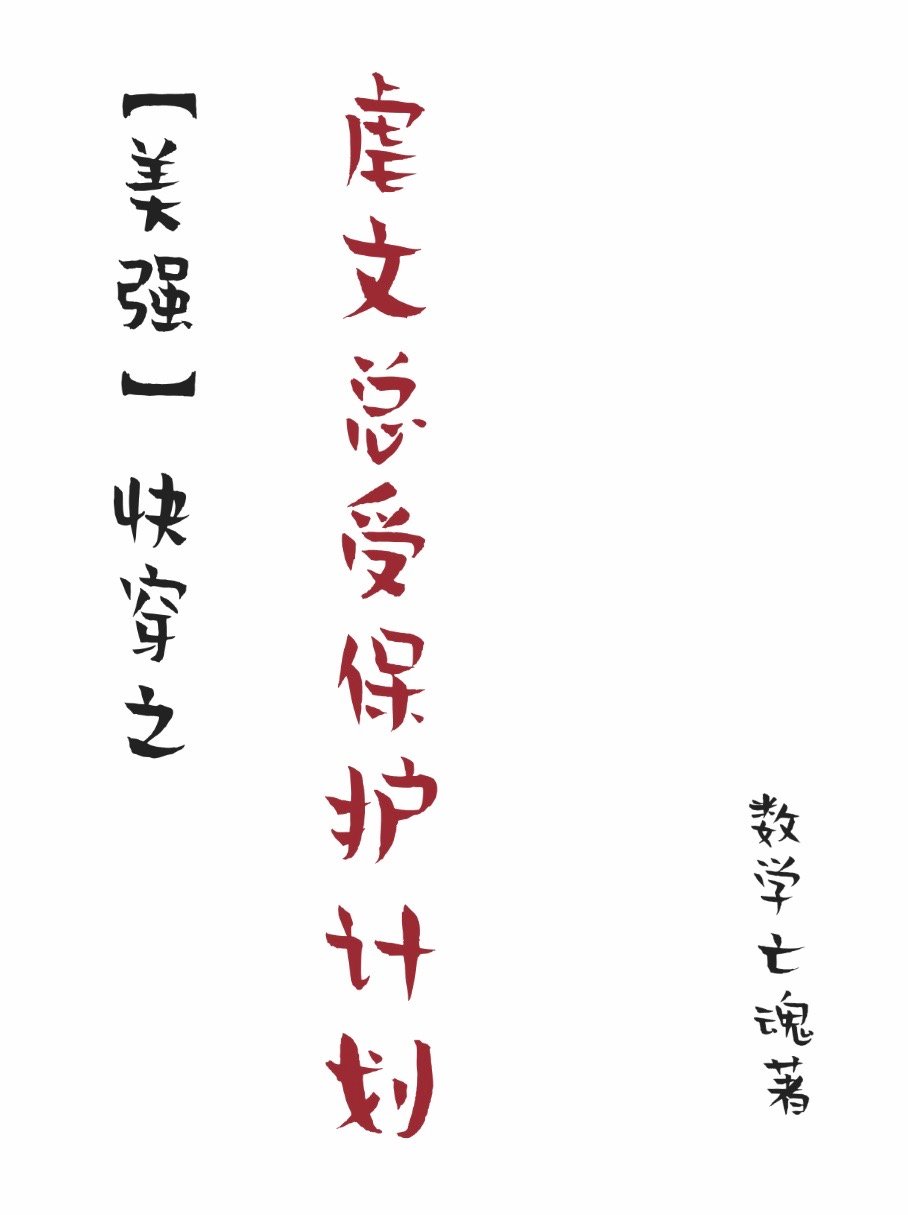 【美强】快穿之
虐文总受保护计划
数学亡魂著